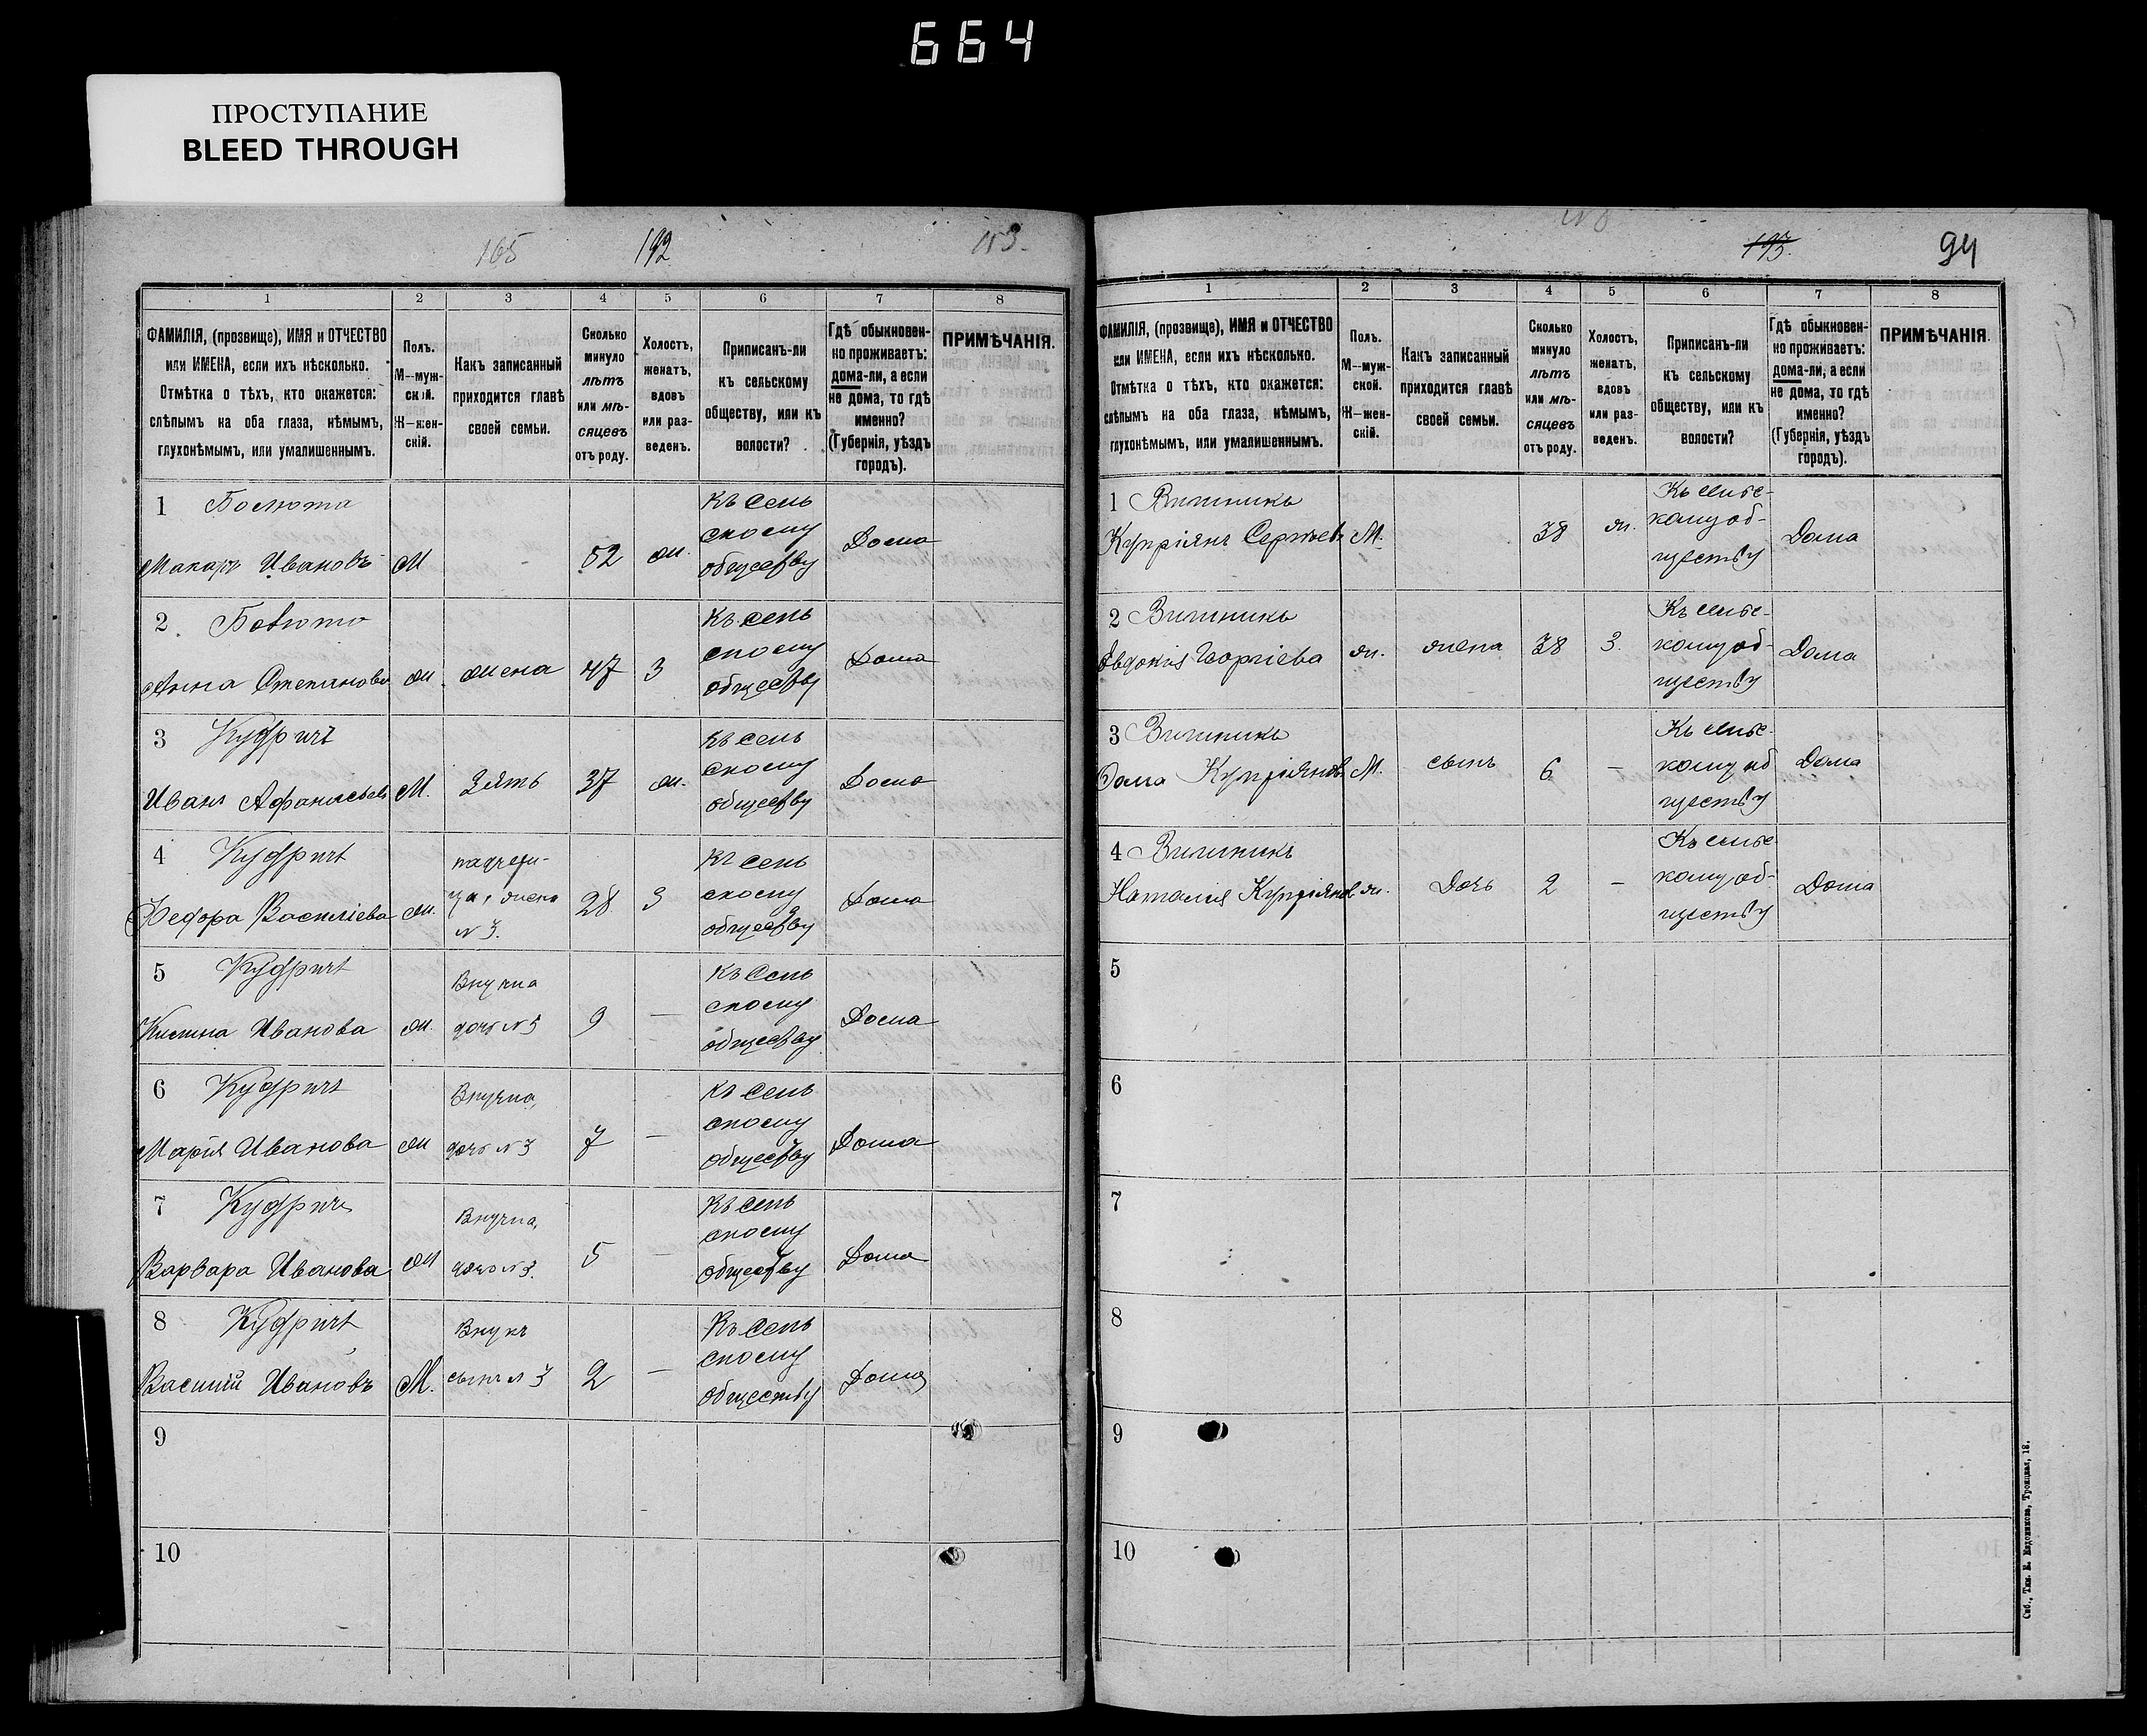 664
ПРОСТУПАНИЕ
BLEED THROUGH
165
192
N 3.
1
2
3
4
5
6
7
8
ФАМИЛІЯ, (прозвище), ИМЯ и ОТЧЕСТВО
или ИМЕНА, если ихъ нѣсколько.
Отмѣтка о тѣхъ, кто окажется:
слѣпымъ на оба глаза, нѣмымъ,
глухонѣмымъ, или умалишеннымъ.
Полъ.
М--муж-
ской.
Ж--жен-
скій.
Какъ записанный
приходится главѣ
своей семьи.
Сколько
минуло
лѣтъ
или мѣ-
сяцевъ
отъ роду.
Холостъ,
женатъ,
вдовъ
или раз-
веденъ.
Приписанъ-ли
къ сельскому
обществу, или къ
волости?
Гдѣ обыкновен-
но проживаетъ:
дома-ли, а если
не дома, то гдѣ
именно?
(Губернія, уѣздъ
городъ).
ПРИМѢЧАНІЯ.
1
Макаръ Ивановъ М 52 ж.
Къ сель
скому
обществу
Дома
2
Анна Степанова ж. жена 47 З
Къ сель
скому
обществу
Дома
3
Иванъ Афанасьевъ М. Зять 37 ж.
Къ сель
скому
обществу
Дома
4
Васильева ж.
падчери-
ца, жена
N 3.
28 З
Къ сель
скому
обществу
Дома
5
Иванова ж.
Внучка
дочь N 3
9 —
Къ сель
скому
обществу
Дома
6
Марія Иванова ж
Внучка,
дочь N 3
7 —
Къ сель
скому
обществу
Дома
7
Варвара Иванова ж
Внучка,
дочь N 3.
5 —
Къ сель
скому
обществу
Дома
8
Василій Ивановъ М.
Внукъ
сынъ N 3
2 —
Къ сель
скому
обществу
Дома
9
10
193.
94
1
2
3
4
5
6
7
8
ФАМИЛІЯ, (прозвище), ИМЯ и ОТЧЕСТВО
или ИМЕНА, если ихъ нѣсколько.
Отмѣтка о тѣхъ, кто окажется:
слѣпымъ на оба глаза, нѣмымъ,
глухонѣмымъ, или умалишеннымъ.
Полъ.
М--муж-
ской.
Ж--жен-
скій.
Какъ записанный
приходится главѣ
своей семьи.
Сколько
минуло
лѣтъ
или мѣ-
сяцевъ
отъ роду.
Холостъ,
женатъ,
вдовъ
или раз-
веденъ.
Приписанъ-ли
къ сельскому
обществу, или къ
волости?
Гдѣ обыкновен-
но проживаетъ:
дома-ли, а если
не дома, то гдѣ
именно?
(Губернія, уѣздъ
городъ).
ПРИМѢЧАНІЯ.
1
Купріянъ Сергѣевъ М. 38 ж.
Къ сельс-
кому об-
ществу
Дома
2
Евдокія Георгіева ж. жена 38 З.
Къ сельс-
кому об-
ществу
Дома
3
Фома Купріяновъ М. сынъ 6 —
Къ сельс-
кому об
ществу
Дома
4
Наталія Купріянов ж. Дочь 2 —
Къ сельс
кому об-
ществу
Дома
5
6
7
8
9
10